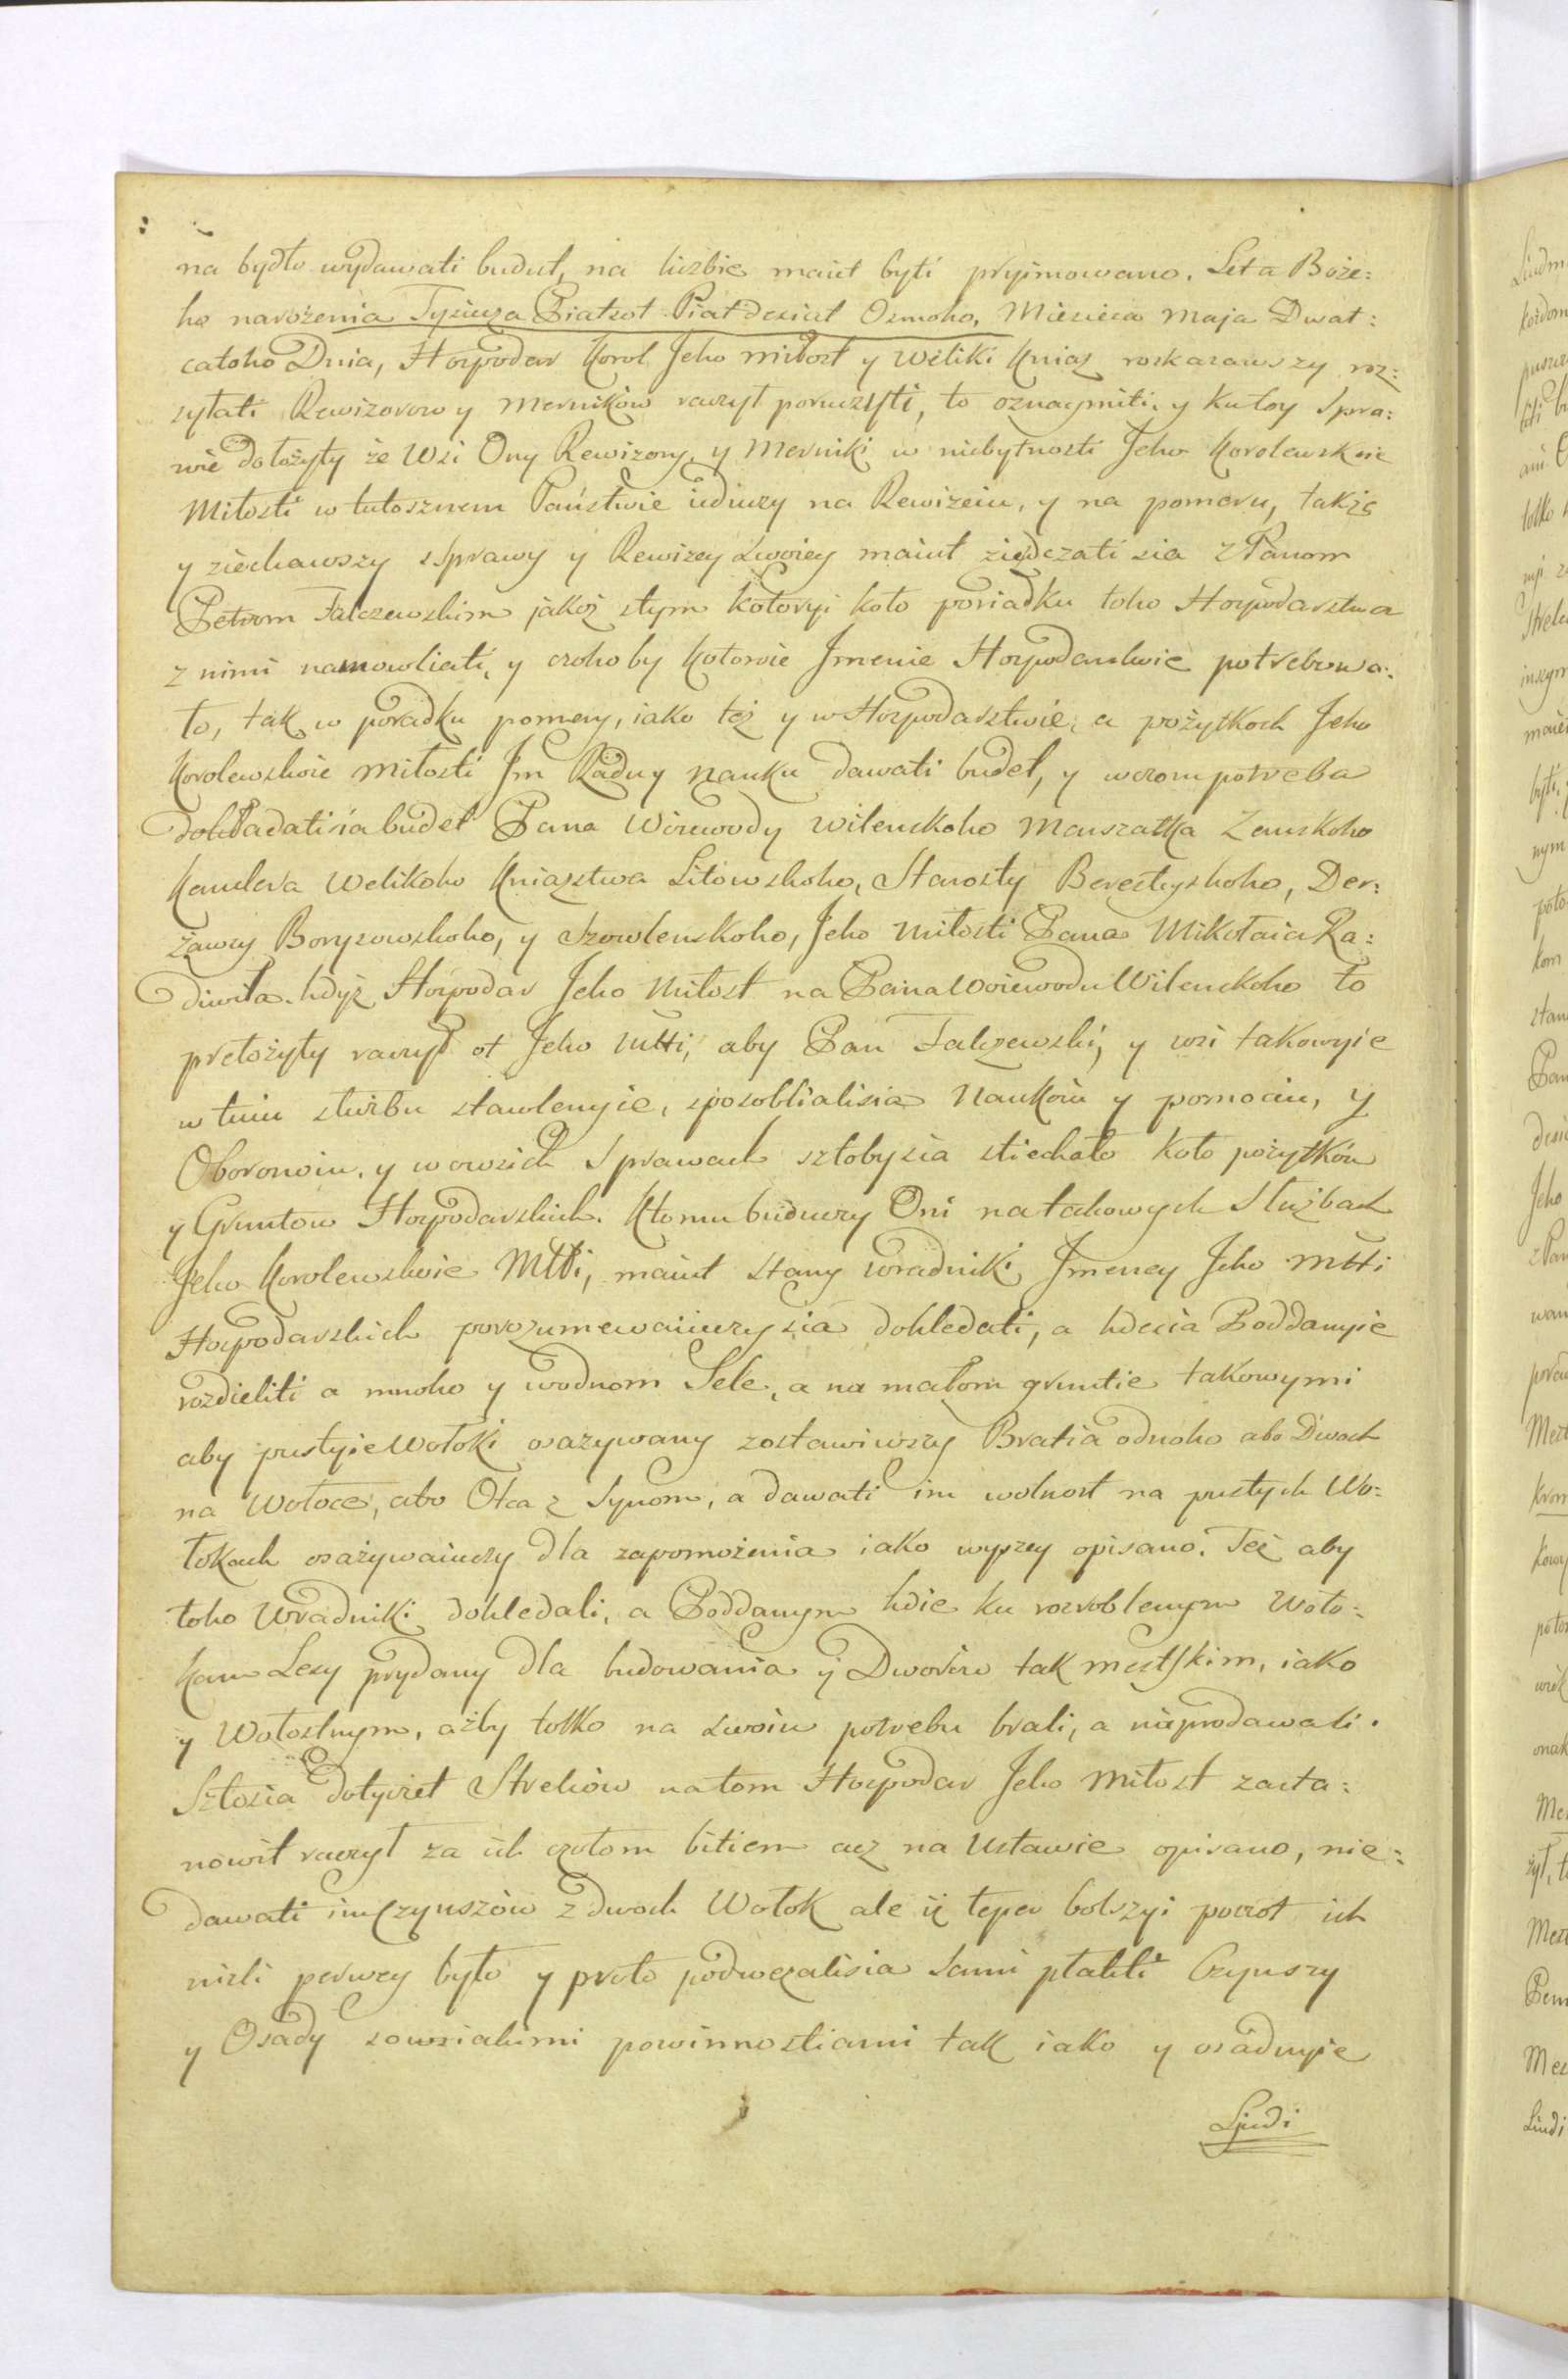 na bydło wydawati budut, na liczbie maiut byti pryimowano. Leta Boże:
ho narożenia Tysiucza Piatsot Piatdesiat Osmoho, Miesieca Maja Dwat:
catoho Dnia, Hospodar Korol Jeho miłost y Weliki Kniaź roskazawszy roz:
syłati Rewizorow y Mernikow raczył poruczyti, to oznaymiti, y ku toy Spra:
wie dołożyty że Wsi Ony Rewizory, y Merniki w niebytnosti Jeho Korolewskoie
Miłosti w tutosznem Państwie iediuczy na Rewizeiu, y na pomeru, takze
y ziechawszy s Sprawy y Rewizey swoiey maiut ziedczati sia z Panom
Petrom Falczewskim jakoż s tym kotoryi koło poriadku toho Hospodarstwa
z nimi namowliati, y czoho by kotoroie Jmenie Hospodarskoie potrebowa:
ło, tak w poradku pomery, iako też y w Hospodarstwie, a pożytkoch Jeho
Korolewskoie miłosti Jm Radu y nauku dawati budet, y w czom potreba
dokładatisia budet Pana Woiewody wilenskoho Marszałka Zemskoho
Kanclera Welikoho Kniazstwa Litowskoho, Starosty Berestyskoho, Der:
żawcy Borysowskoho, y Szowlenskoho, Jeho Miłosti Pana Mikołaia Ra:
diwiła. hdyż Hospodar Jeho Miłost na Pana Woiewodu Wilenskoho to
prełożyty raczył ot Jeho Młti, aby Pan Falczewski, y wsi takowyie
w tuiu służbu stawlenyie, sposoblialisia Naukoiu y pomociu, y
Oboronoiu, y wo wsich Sprawach sztoby sia stiechało koło pożytków
y Gruntow Hospodarskich. Ktomu buduczy Oni na takowych Służbach
Jeho Korolewskoie Młti, maiut stany wradniki Jmeney Jeho Młti
Hospodarskich porozumewaiuczysia dohledati, a hde sia Poddanyie
rozdieliti a mnoho y w odnom Sele, a na małom gruntie takowymi
aby pustyie Wołoki osażywany zostawiwszy Bratia odnoho abo Dwoch
na Wołoce, abo Otca z Synom, a dawati im wolnost na pustych Wo:
łokach osażywaiuczy dla zapomożenia iako wyszey opisano. Też aby
toho Wradniki dohledali, a Poddanym hdie ku rozroblenym Woło:
kam Lesy prydany dla budowania y Dworow tak mestskim, iako
y Wołostnym, ażby tolko na swoiu potrebu brali, a nieprodawali.
Sztosia dotyczet Strelców na tom Hospodar Jeho Miłost zasta:
nowił raczył za ich czołom bitiem acz na Ustawie opisano, nie:
dawati im Czynszów z dwoch Wołok ale iż teper bolszyi poczot ich
nizli perwey było y proto podwezalisia sami płatiti Czynszy
y Osady so wsiakimi powinnostiami tak iako y osadnyie
Ljudi